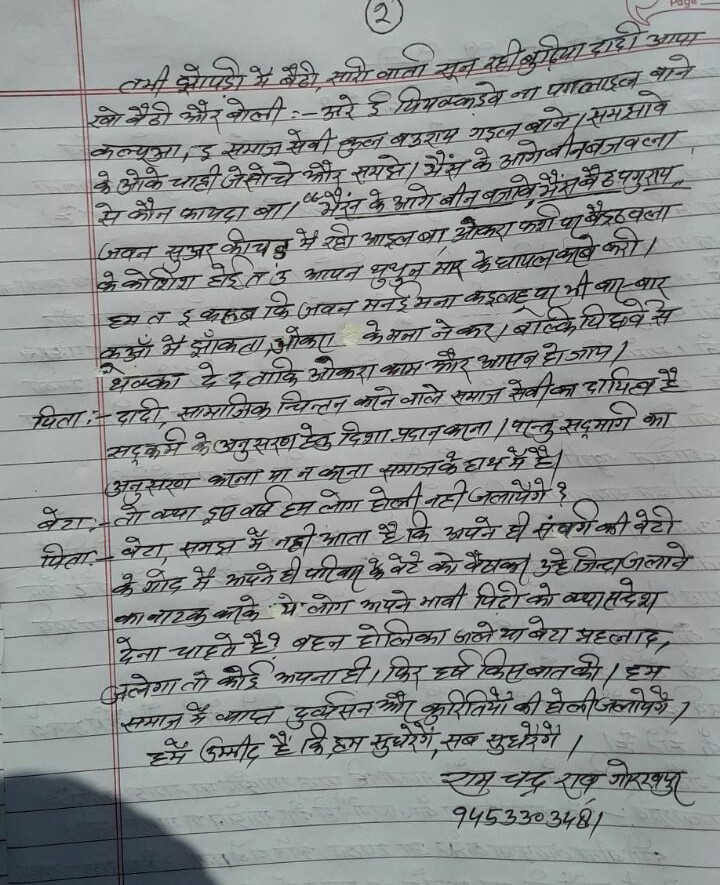 २
Page
तभी झोपडी में बैठी, सारी वार्ता सुन रही बुढ़िया दादी आपा
खो बैठी और बोली :- अरे ई पियक्कड़वे ना पगलाइल बाने
कलुआ, इ समाज सेवी कुल बउराय गइल बाने। समझावे
के ओके चाही जे सोचे और समझे। भैंस के आगे बीन बजवला
से कौन फायदा बा। "भैंस के आगे बीन बजावे, भैंस बैठ पगुराय"
जवन सुअर कीचड़ में रही आइल बा, ओकरा फर्श पा बैइठवला
के कोशिश होई त उ आपन थुथुन मार के घायल काबे करी।
हम त इ कहब कि जवन मनई मना कइलहू पा भी बार-बार
कुआँ में झाँकता, ओकरा के मना ने कर। बाल्कि पिछवे से
धक्का दे द ताकि ओकरा काम और आसन हो जाय।
पिता :- दादी, सामाजिक चिन्तन करने वाले समाज सेवी का दायित्व है
सद्कर्म के अनुसरण हेतु दिशा प्रदान करना। परन्तु सद्मार्ग का
अनुसरण करना या न करना समाज के हाथ में है।
बेटा :- तो क्या इस वर्ष हम लोग होली नही जलायेंगे?
पिता :- बेटा, समझ में नही आता है कि अपने ही संवर्ग की बेटी
के गोद में अपने ही परिवार के बेटे को बैठाकर उन्हे जिन्दा जलाने
का नाटक करके ये लोग अपने भावी पिढी को क्या संदेश
देना चाहते है? बहन होलिका जले या बेटा प्रहलाद,
जलेगा तो कोई अपना ही। फिर हर्ष किस बात की। हम
समाज में व्याप्त दुर्व्यसन और कुरितियों की होली जलायेंगे।
हमें उम्मीद है कि हम सुधरेंगे, सब सुधरेंगे।
राम चन्द्र राव गोरखपुर
9453303481